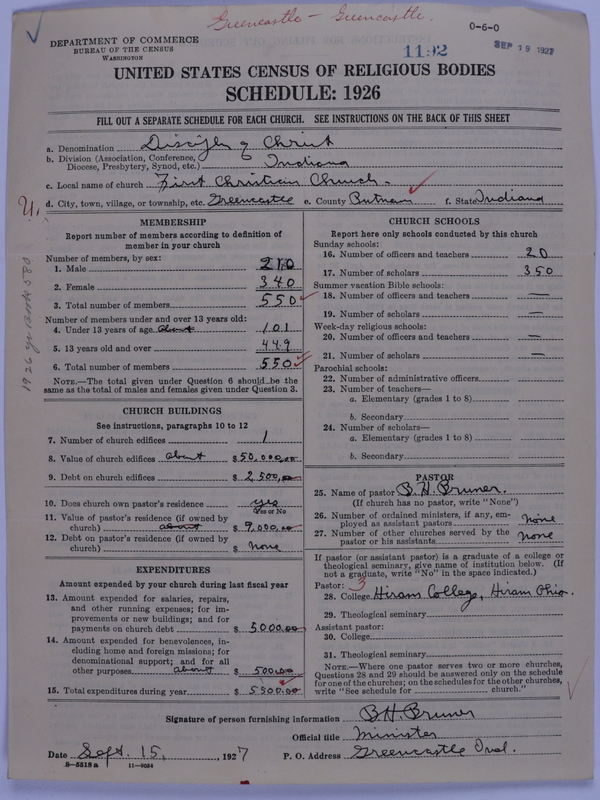 Greencastle - Greencastle.
0-6-0
DEPARTMENT OF COMMERCE
BUREAU OF THE CENSUS
WASHINGTON
1192
SEP 19 1927
UNITED STATES CENSUS OF RELIGIOUS BODIES
SCHEDULE: 1926
FILL OUT A SEPARATE SCHEDULE FOR EACH CHURCH. SEE INSTRUCTIONS ON THE BACK OF THIS SHEET
a. Denomination Disciples of Christ
b. Division (Association, Conference, Diocese, Presbytery, Synod, etc.) Indiana
c. Local name of church First Christian Church.
d. City, town, village, or township, etc. Greencastle e. County Putnam f. State Indiana
U.
1926 yr Book 580
MEMBERSHIP
Report number of members according to definition of
member in your church
Number of members, by sex:
1. Male 210
2. Female 340
3. Total number of members 550
Number of members under and over 13 years old:
4. Under 13 years of age about 101
5. 13 years old and over 449
6. Total number of members 550
NOTE.—The total given under Question 6 should be the
same as the total of males and females given under Question 3.
CHURCH BUILDINGS
See instructions, paragraphs 10 to 12
7. Number of church edifices 1
8. Value of church edifices about $50,000.00
9. Debt on church edifices $2500.00
10. Does church own pastor's residence? yes
Yes or No
11. Value of pastor's residence (if owned by
church) about $9,000.00
12. Debt on pastor's residence (if owned by
church) $ None
EXPENDITURES
Amount expended by your church during last fiscal year
13. Amount expended for salaries, repairs,
and other running expenses; for im-
provements or new buildings; and for
payments on church debt $5000.00
14. Amount expended for benevolences, in-
cluding home and foreign missions; for
denominational support; and for all
other purposes about $500.00
15. Total expenditures during year $5500.00
CHURCH SCHOOLS
Report here only schools conducted by this church
Sunday schools:
16. Number of officers and teachers 20
17. Number of scholars 350
Summer vacation Bible schools:
18. Number of officers and teachers —
19. Number of scholars —
Week-day religious schools:
20. Number of officers and teachers —
21. Number of scholars —
Parochial schools:
22. Number of administrative officers
23. Number of teachers—
a. Elementary (grades 1 to 8)
b. Secondary
24. Number of scholars—
a. Elementary (grades 1 to 8)
b. Secondary
PASTOR
25. Name of pastor B. H. Bruner.
(If church has no pastor, write "None")
26. Number of ordained ministers, if any, em-
ployed as assistant pastors none
27. Number of other churches served by the
pastor or his assistants none
If pastor (or assistant pastor) is a graduate of a college or
theological seminary, give name of institution below. (If
not a graduate, write "No" in the space indicated.)
Pastor: 3
28. College Hiram College, Hiram Ohio.
29. Theological seminary
Assistant pastor:
30. College
31. Theological seminary
NOTE.—Where one pastor serves two or more churches,
Questions 28 and 29 should be answered only on the schedule
for one of the churches; on the schedules for the other churches,
write "See schedule for church."
Signature of person furnishing information B. H. Bruner
Official title Minister
Date Sept. 15, 1927 P. O. Address Greencastle Ind.
8-5518 a 11-9034